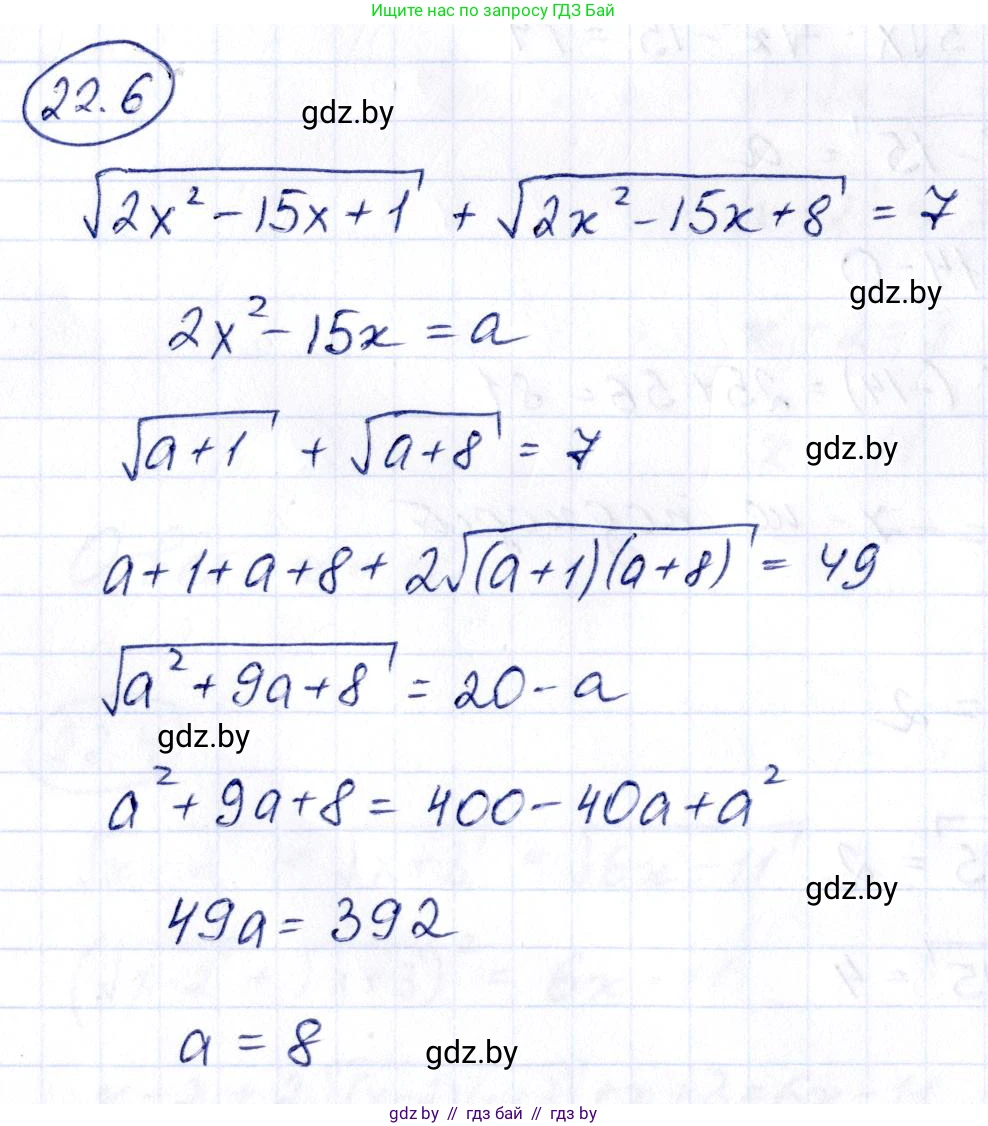 Ищите нас по запросу ГДЗ Бай
22.6
gdz.by
√(2x² - 15x + 1) + √(2x² - 15x + 8) = 7
gdz.by
2x² - 15x = a
√(a + 1) + √(a + 8) = 7
gdz.by
a + 1 + a + 8 + 2√((a + 1)(a + 8)) = 49
√(a² + 9a + 8) = 20 - a
gdz.by
a² + 9a + 8 = 400 - 40a + a²
gdz.by
49a = 392
a = 8
gdz.by
gdz by // гдз бай // gdz by